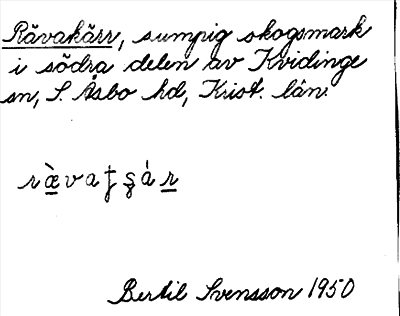 Rävakärr, sumpig skogsmark
i södra delen av Kvidinge
sn, S. Åsbo hd, Krist. län.
Bertil Svensson 1950